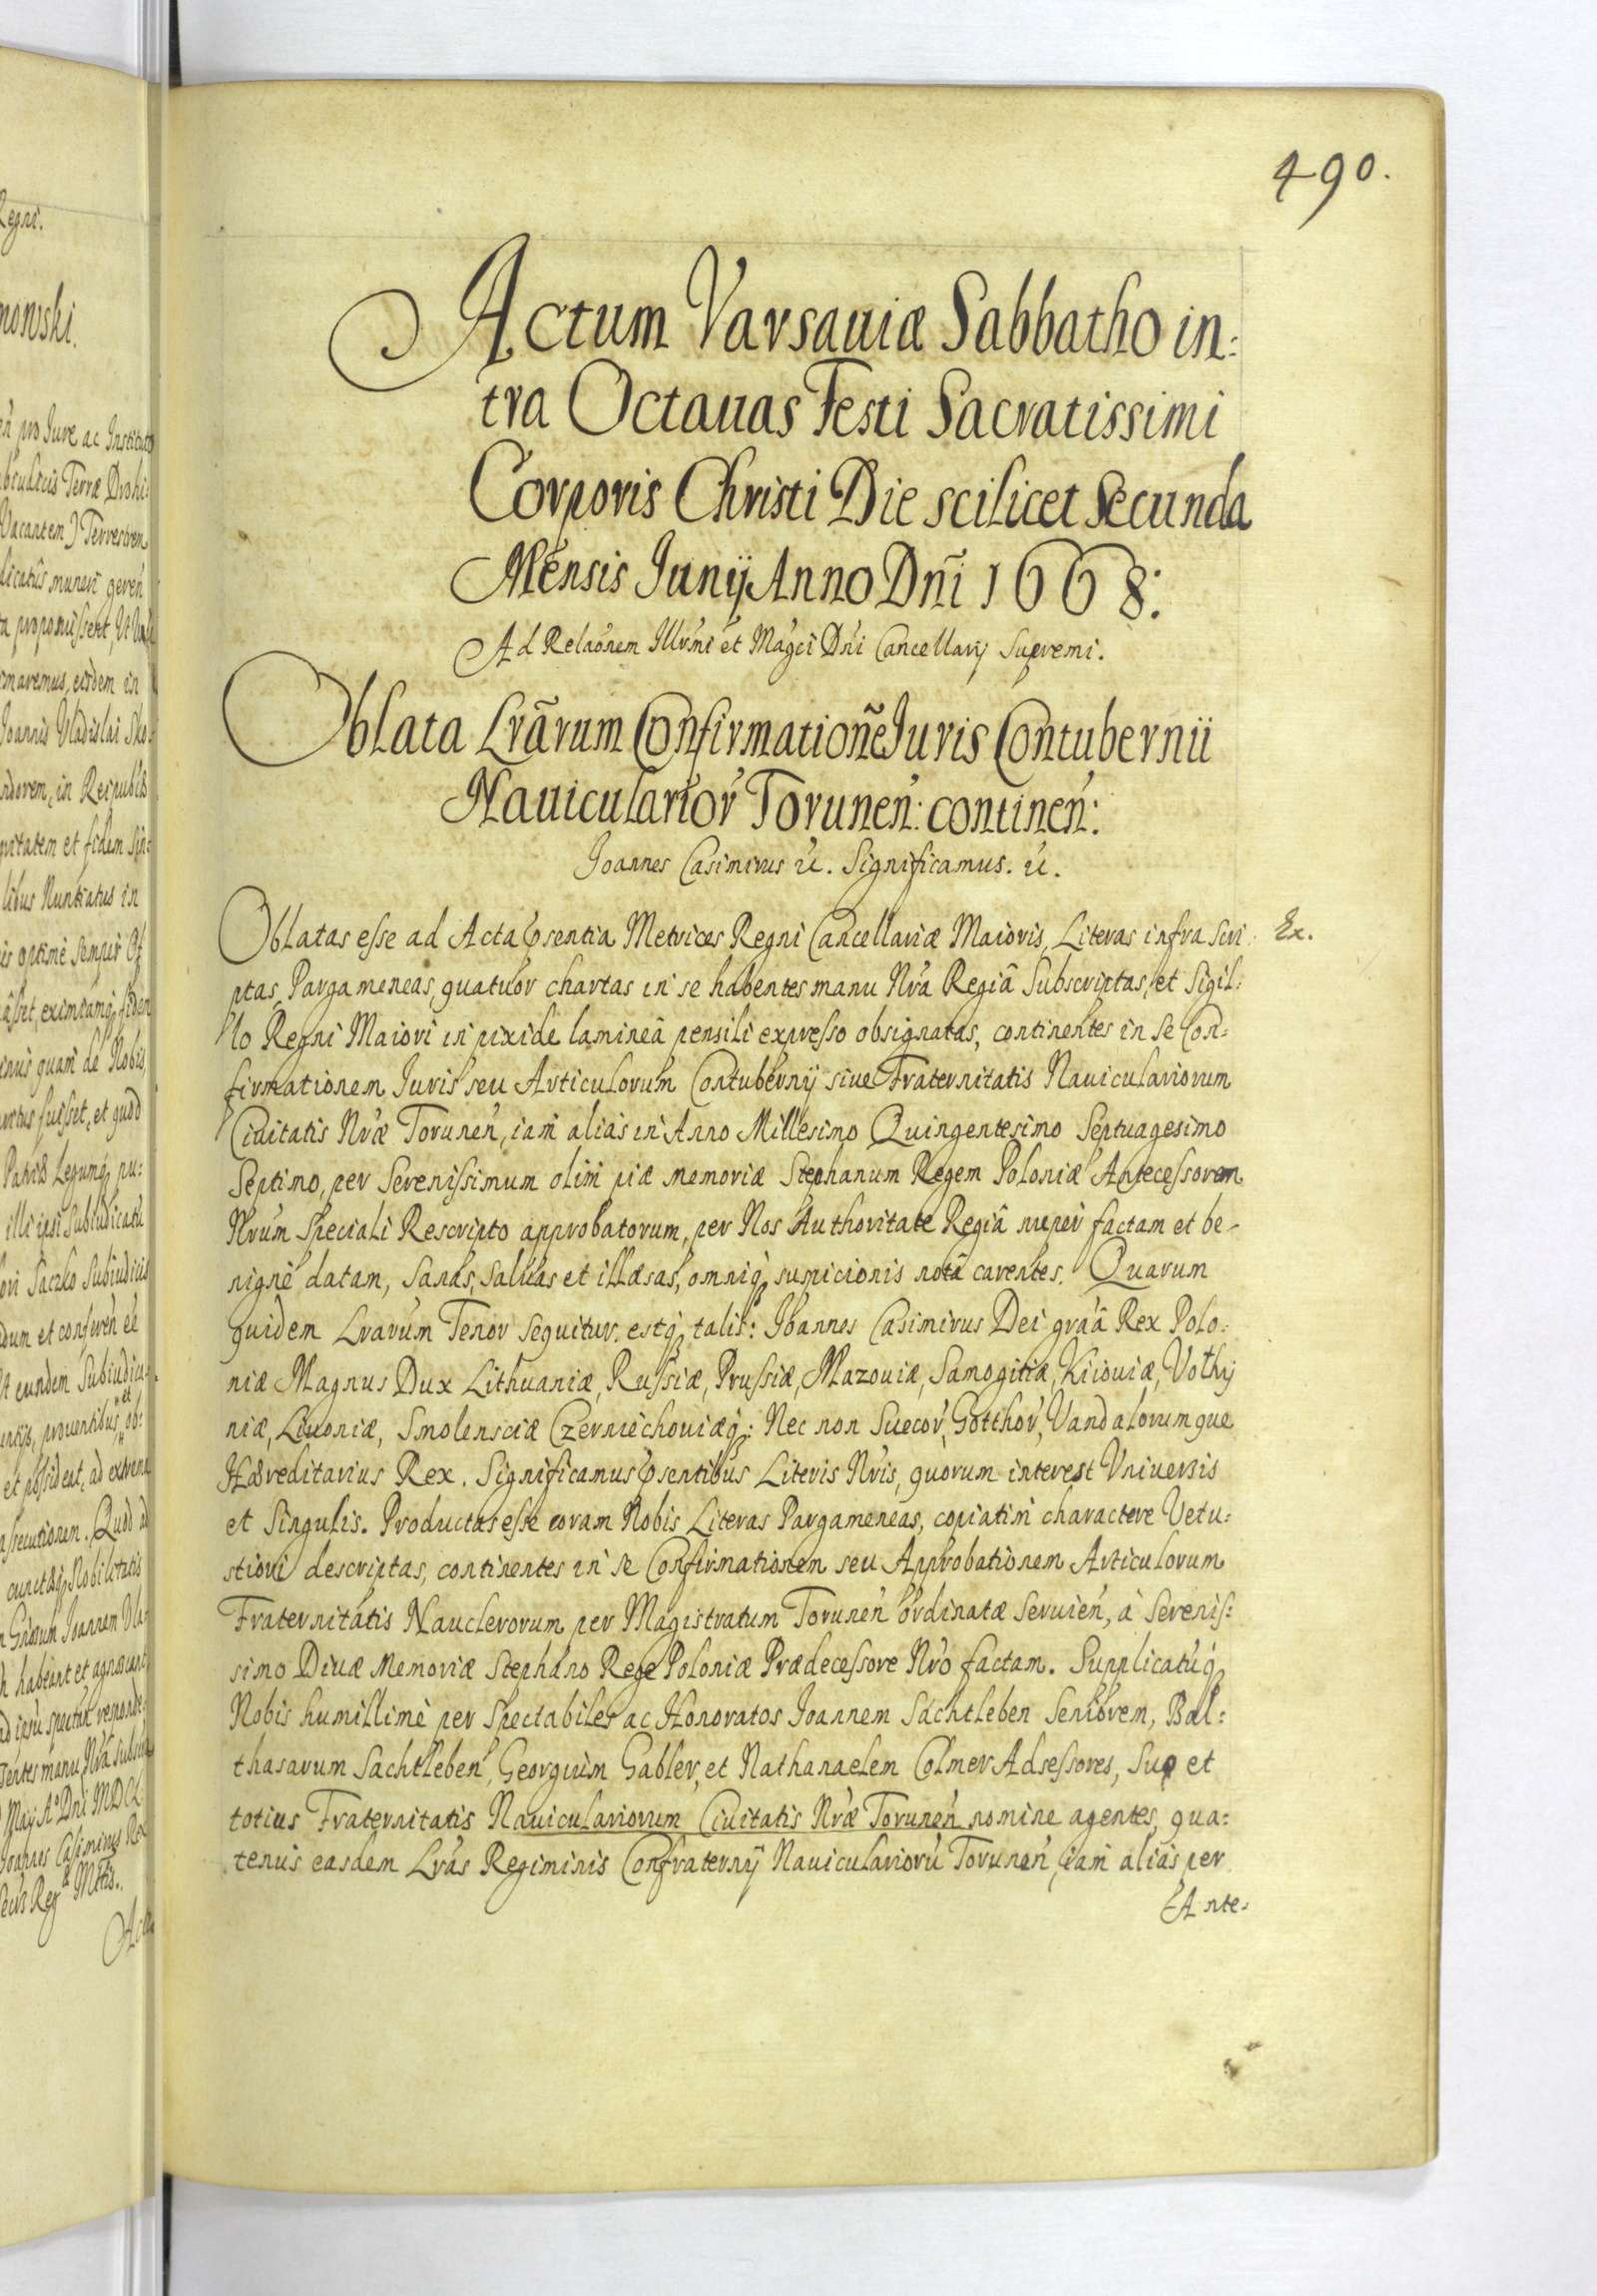 490.
Actum Varsauiæ Sabbatho in:
tra Octauas Festi Sacratissimi
Corporis Christi Die scilicet Secunda
Mensis Junij Anno Dñi 1668:
Ad Relaōnem Illrmi et Magci Dni Cancellarij Supremi.
Oblata Lrārum Confirmationẽ Juris Contubernii
Nauicularior Torunen: continen:
Joannes Casimirus &. Significamus. &.
Oblatas esse ad Acta Psentia Metrices Regni Cancellariæ Maioris, Literas infra scri Ex.
ptas Pargameneas, quatuor chartas in se habentes manu Nrã Regiâ Subscriptas, et Sigil:
lo Regni Maiori in pixide lamineâ pensili expresso obsignatas, continentes in se Con:
firmationem Juris seu Articulorum Contubernij siue Fraternitatis Nauiculariorum
Ciuitatis Nræ Torunen, iam alias in Anno Millesimo Quingentesimo Septuagesimo
Septimo, per Serenissimum olim piæ memoriæ Stephanum Regem Poloniæ Antecessorem
Nrum Speciali Rescripto approbatorum, per Nos Authoritate Regiâ nuper factam et be-
nignè datam, Sanas, saluas et illæsas, omniq suspicionis notâ carentes. Quarum
quidem Lrarum Tenor sequitur. estq talis: Joannes Casimirus Dei grãâ Rex Polo:
niæ Magnus Dux Lithuaniæ, Russiæ, Prussiæ, Mazouiæ, Samogitiæ, Kiiouiæ, Volhij
niæ, Liuoniæ, Smolensciæ Czerniechouiæq: Nec non Suecor, Gotthor, Vandalorumque
Hæreditarius Rex. Significamus Psentibus Literis Nris, quorum interest Vniuersis
et Singulis. Productas esse coram Nobis Literas Pargameneas, copiatim charactere Vetu:
stiori descriptas, continentes in se Confirmationem seu Approbationem Articulorum
Fraternitatis Nauclerorum per Magistratum Torunen ordinatæ seruien, à Serenis:
simo Diuæ Memoriæ Stephano Rege Poloniæ Prædecessore Nro factam. Supplicatuq
Nobis humillimè per Spectabiles ac Honoratos Joannem Sachtleben Seniorem, Bal:
thasarum Sachtleben, Georgium Gabler, et Nathanaelem Colmer Adsessores, Suo et
totius Fraternitatis Nauiculariorum Ciuitatis Nræ Torunen nomine agentes, qua:
tenus easdem Lras Regiminis Confraternij Nauicularioru Torunen, iam alias per
Ante-